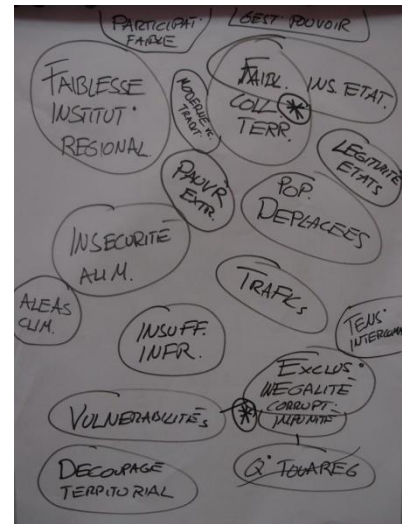 PARTICIPAT·
FAIBLE
GEST· POUVOIR
FAIBLESSE
INSTITUT·
REGIONAL.
MODERNE vs.
TRADIT·
FAIBL.
COLL
TERR.
*
INS. ETAT.
LEGITIMITÉ
ETATS
PAUVR
EXTR.
POP.
DEPLACÉES
INSECURITÉ
ALIM.
TRAFICS
ALEAS
CLIM.
INSUFF.
INFR.
TENS·
EXCLUS·
INEGALITÉ
CORRUPT-
IMPUNITÉ
VULNERABILITÉS
*
DECOUPAGE
TERRITORIAL
Q· TOUAREG